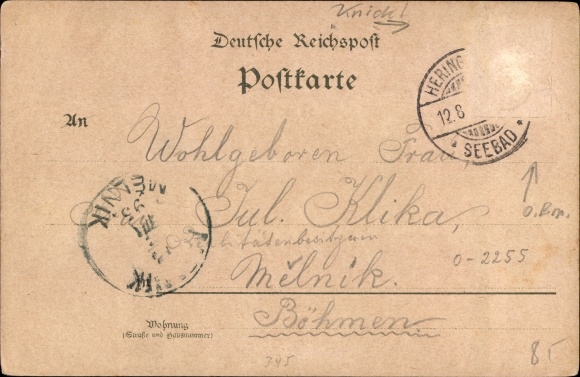 Knick!
Deutsche Reichspost
Postkarte
HERING
12.8
* SEEBAD *
An
Wohlgeboren Frau
Jul. Klika,
Realitätenbesitzerin
Mělnik.
Böhmen
MĚLNÍK
o. Bm.
0-2255
Wohnung
(Straße und Hausnummer)
345
85